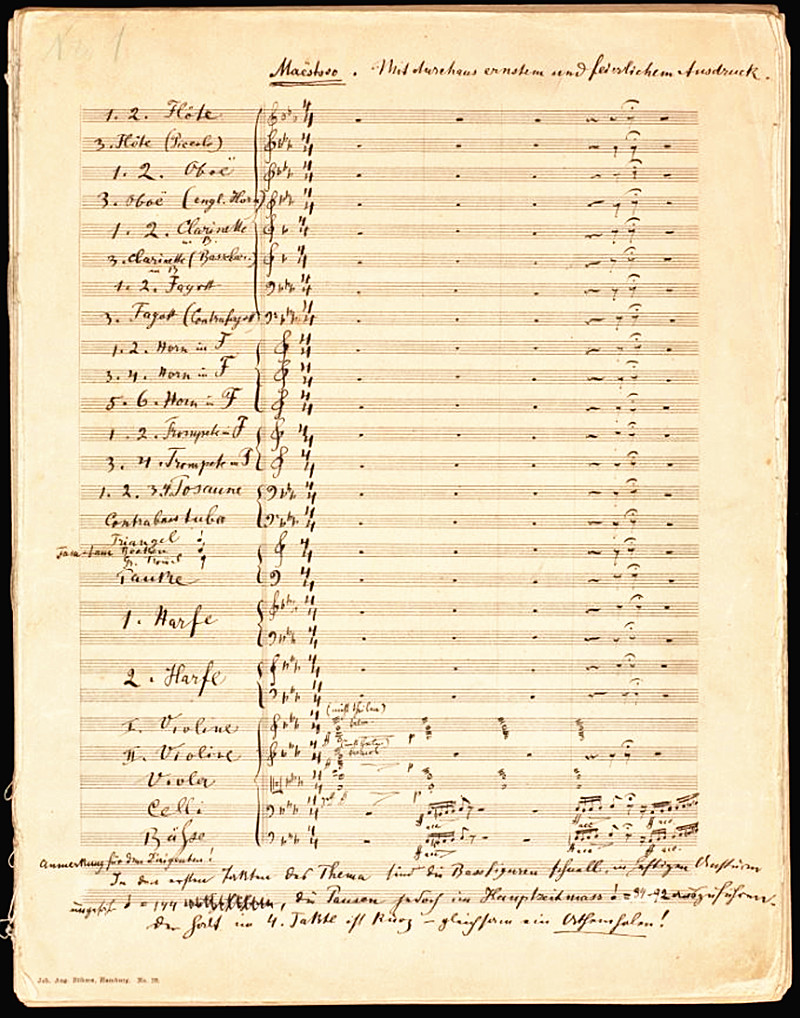 No 1
Maëstoso. Mit durchaus ernstem und feierlichem Ausdruck.
1. 2. Flöte
3. Flöte (Piccolo)
1. 2. Oboë
3. Oboë (engl. Horn)
1. 2. Clarinette
in B
3. Clarinette (Bassclar.)
in B
1. 2. Fagott
3. Fagott (Contrafagott)
1. 2. Horn in F
3. 4. Horn in F
5. 6. Horn in F
1. 2. Trompete in F
3. 4. Trompete in F
1. 2. 3. 4. Posaune
Contrabasstuba
Triangel
Tam-tam Becken
Gr. Tromel
Pauke
1. Harfe
2. Harfe
(nicht theilen)
I. Violine
II. Violine
Viola
Celli
Bäße
Anmerkung für den Dirigenten!
In den ersten Takten des Thema sind die Bassfiguren schnell, in heftigem Ansturm
ungefähr = 144, die Pausen jedoch im Hauptzeitmass = 84-92 auszuführen.
Der Halt im 4. Takte ist kurz – gleichsam ein Athemholen!
Joh. Aug. Böhme, Hamburg. No.